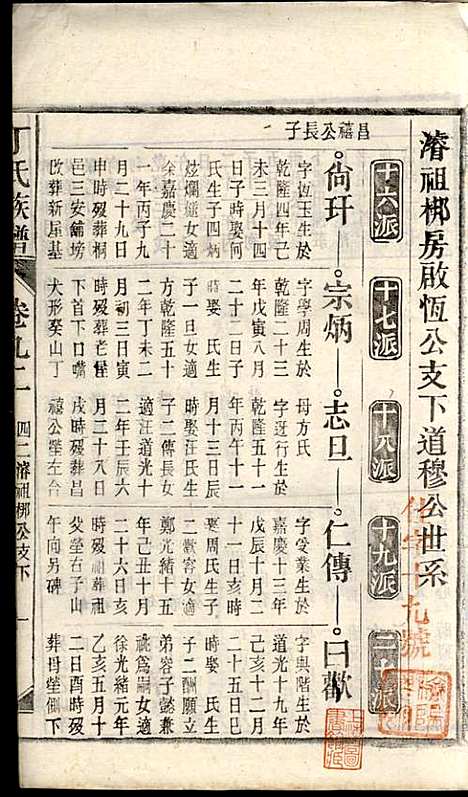 濬祖梆房啟恆公支下道穆公世系
十六派
十七派
十八派
十九派
二十派
昌禧公長子
尚玕
宗炳
志旦
仁傳
曰歡
字恆玉生於
乾隆四年己
未三月十四
日子時娶何
氏生子四炳
炫爛爐女適
余嘉慶二十
一年丙子九
月二十九日
申時歿葬桐
邑三安鋪塝
改葬新屋基
字學周生於
乾隆二十三
年戊寅八月
二十二日子
時娶 氏生
子一旦女適
乾隆五十
二年丁未二
月初三日寅
時歿葬老俚
下首下口嘴
犬形癸山丁
母方氏
字迓行生於
乾隆五十一
年丙午十一
月十三日辰
時娶汪氏生
子二傳長女
適汪道光十
二年壬辰六
月二十八日
戌時歿葬昌
禧公塋左台
字受業生於
嘉慶十三年
戊辰十月二
十一日亥時
娶周氏生子
二歡容女適
鄭光緒十五
年己丑十月
二十六日亥
時歿葬祖
癸塋右子山
午向另碑
字與階生於
道光十九年
己亥十二月
二十五日巳
時娶 氏生
子二酬願立
弟容子懿兼
祧為嗣女適
徐光緒元年
乙亥五月十
二日酉時歿
葬母塋側下
丁氏族譜
卷九二
四二濬祖梆公支下
一